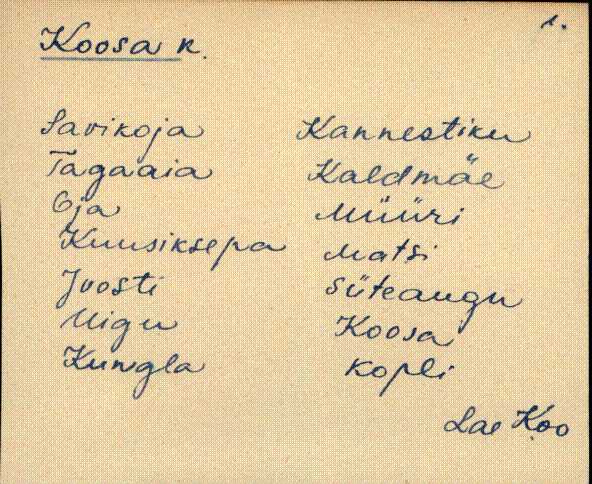 1.
Koosa k.
Savikoja
Tagaaia
Oja
Kuusiksepa
Joosti
Uigu
Kungla
Kannestiku
Kaldmäe
Müüri
Matsi
Süteaugu
Koosa
Kopli
Lae Koo